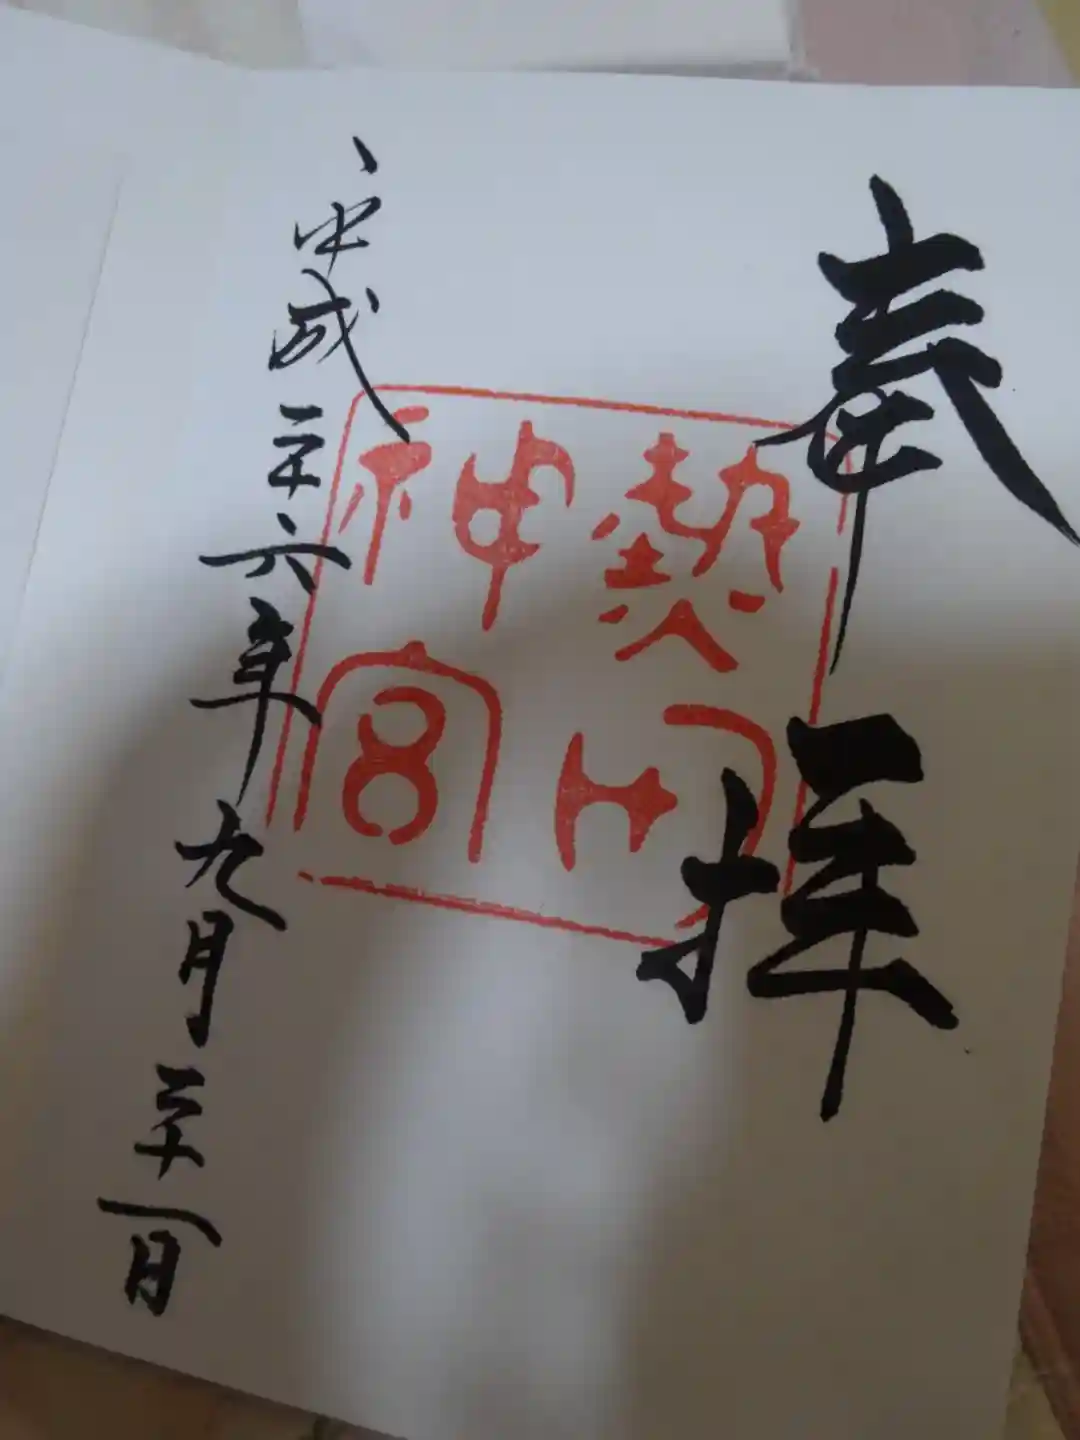 奉拝
熱田
神宮
平成二十六年九月二十一日